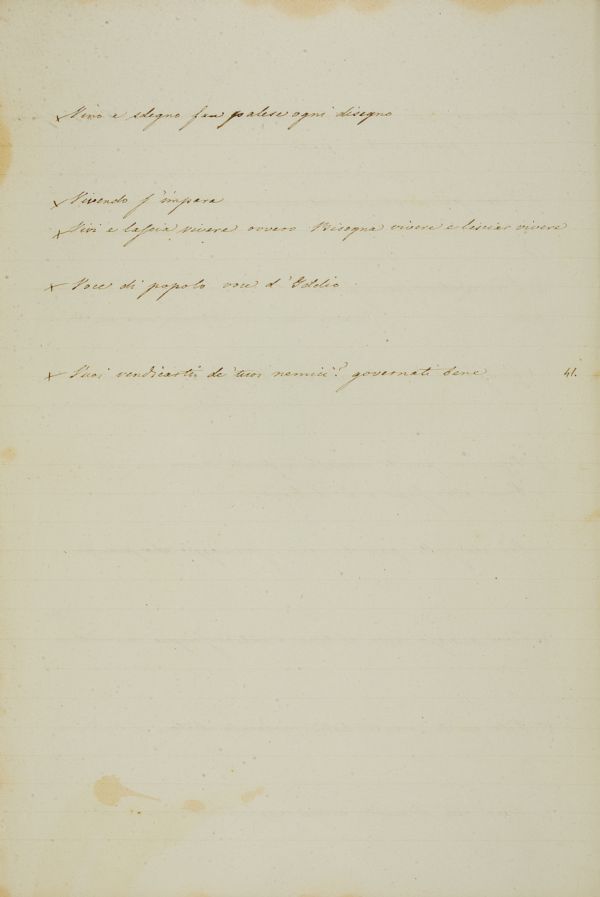 x Vino e sdegno fan palese ogni disegno
x Vivendo s'impara
x Vivi e lascia vivere ovvero Bisogna vivere e lasciar vivere
x Voce di popolo voce d'Iddio
x Vuoi vendicarti de' tuoi nemici? governati bene 41.